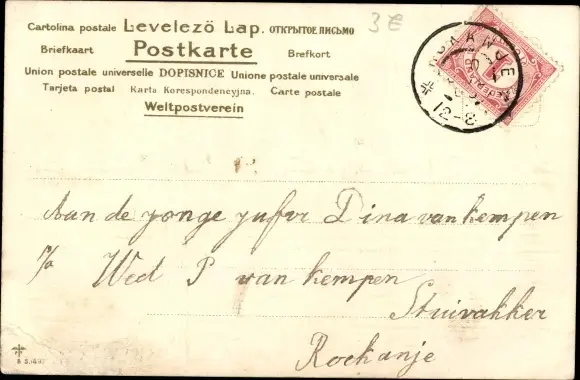 Cartolina postale Levelező Lap. ОТКРЫТОЕ ПИСЬМО
Briefkaart Postkarte Brefkort
Union postale universelle DOPISNICE Unione postale universale
Tarjeta postal Karta Korespondencyjna. Carte postale
Weltpostverein
3E
ROKANJE
12-3
Aan de jonge jufvr Dina van kempen
p/a Wed P van kempen
Stuivakker
Rockanje